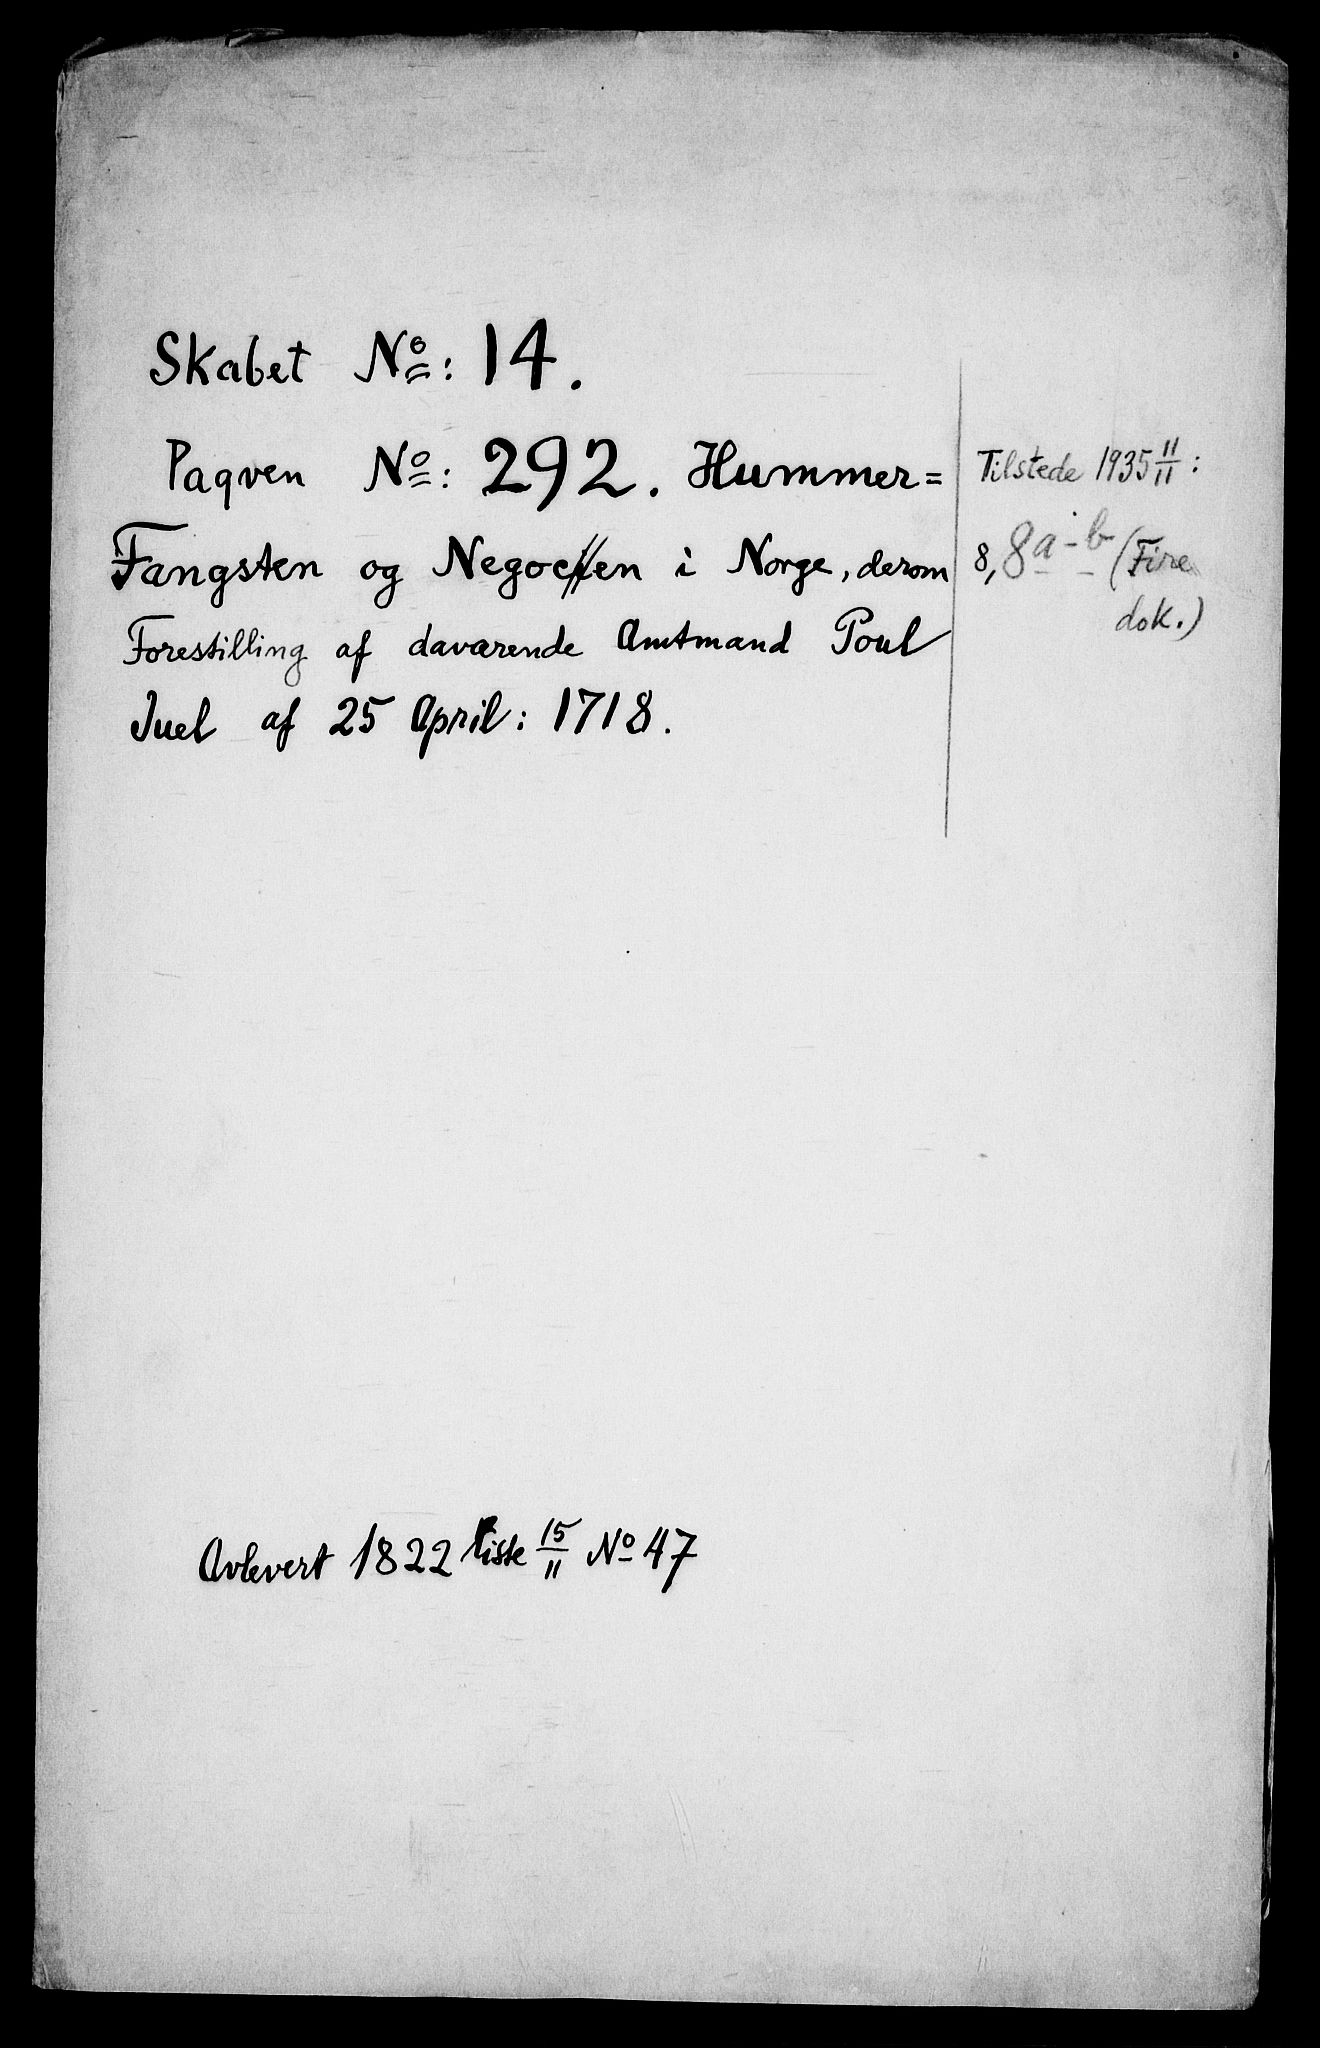 Skabet No: 14.
Paqven No: 292. Hummer=
Fangsten og Negocen i Norge, derom
Forestilling af daværende Amtmand Poul
Juel af 25 April: 1718.
Tilstede 1935 11/11:
8, 8a-b (Fire
dok.)
Avlevert 1822 liste 15/11 No 47